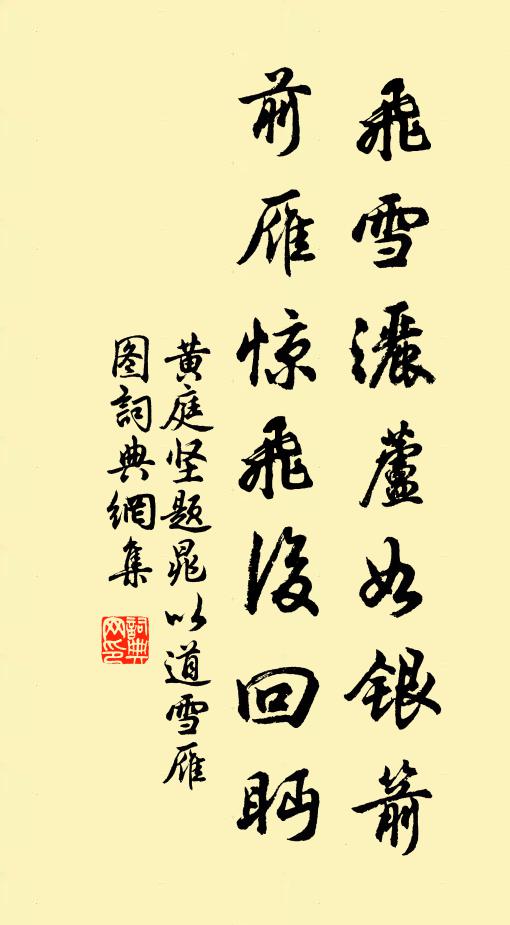 飛雪灑蘆如銀箭
前雁惊飛後回眄
黄庭坚题晁以道雪雁
图詞典網集
詞典网印